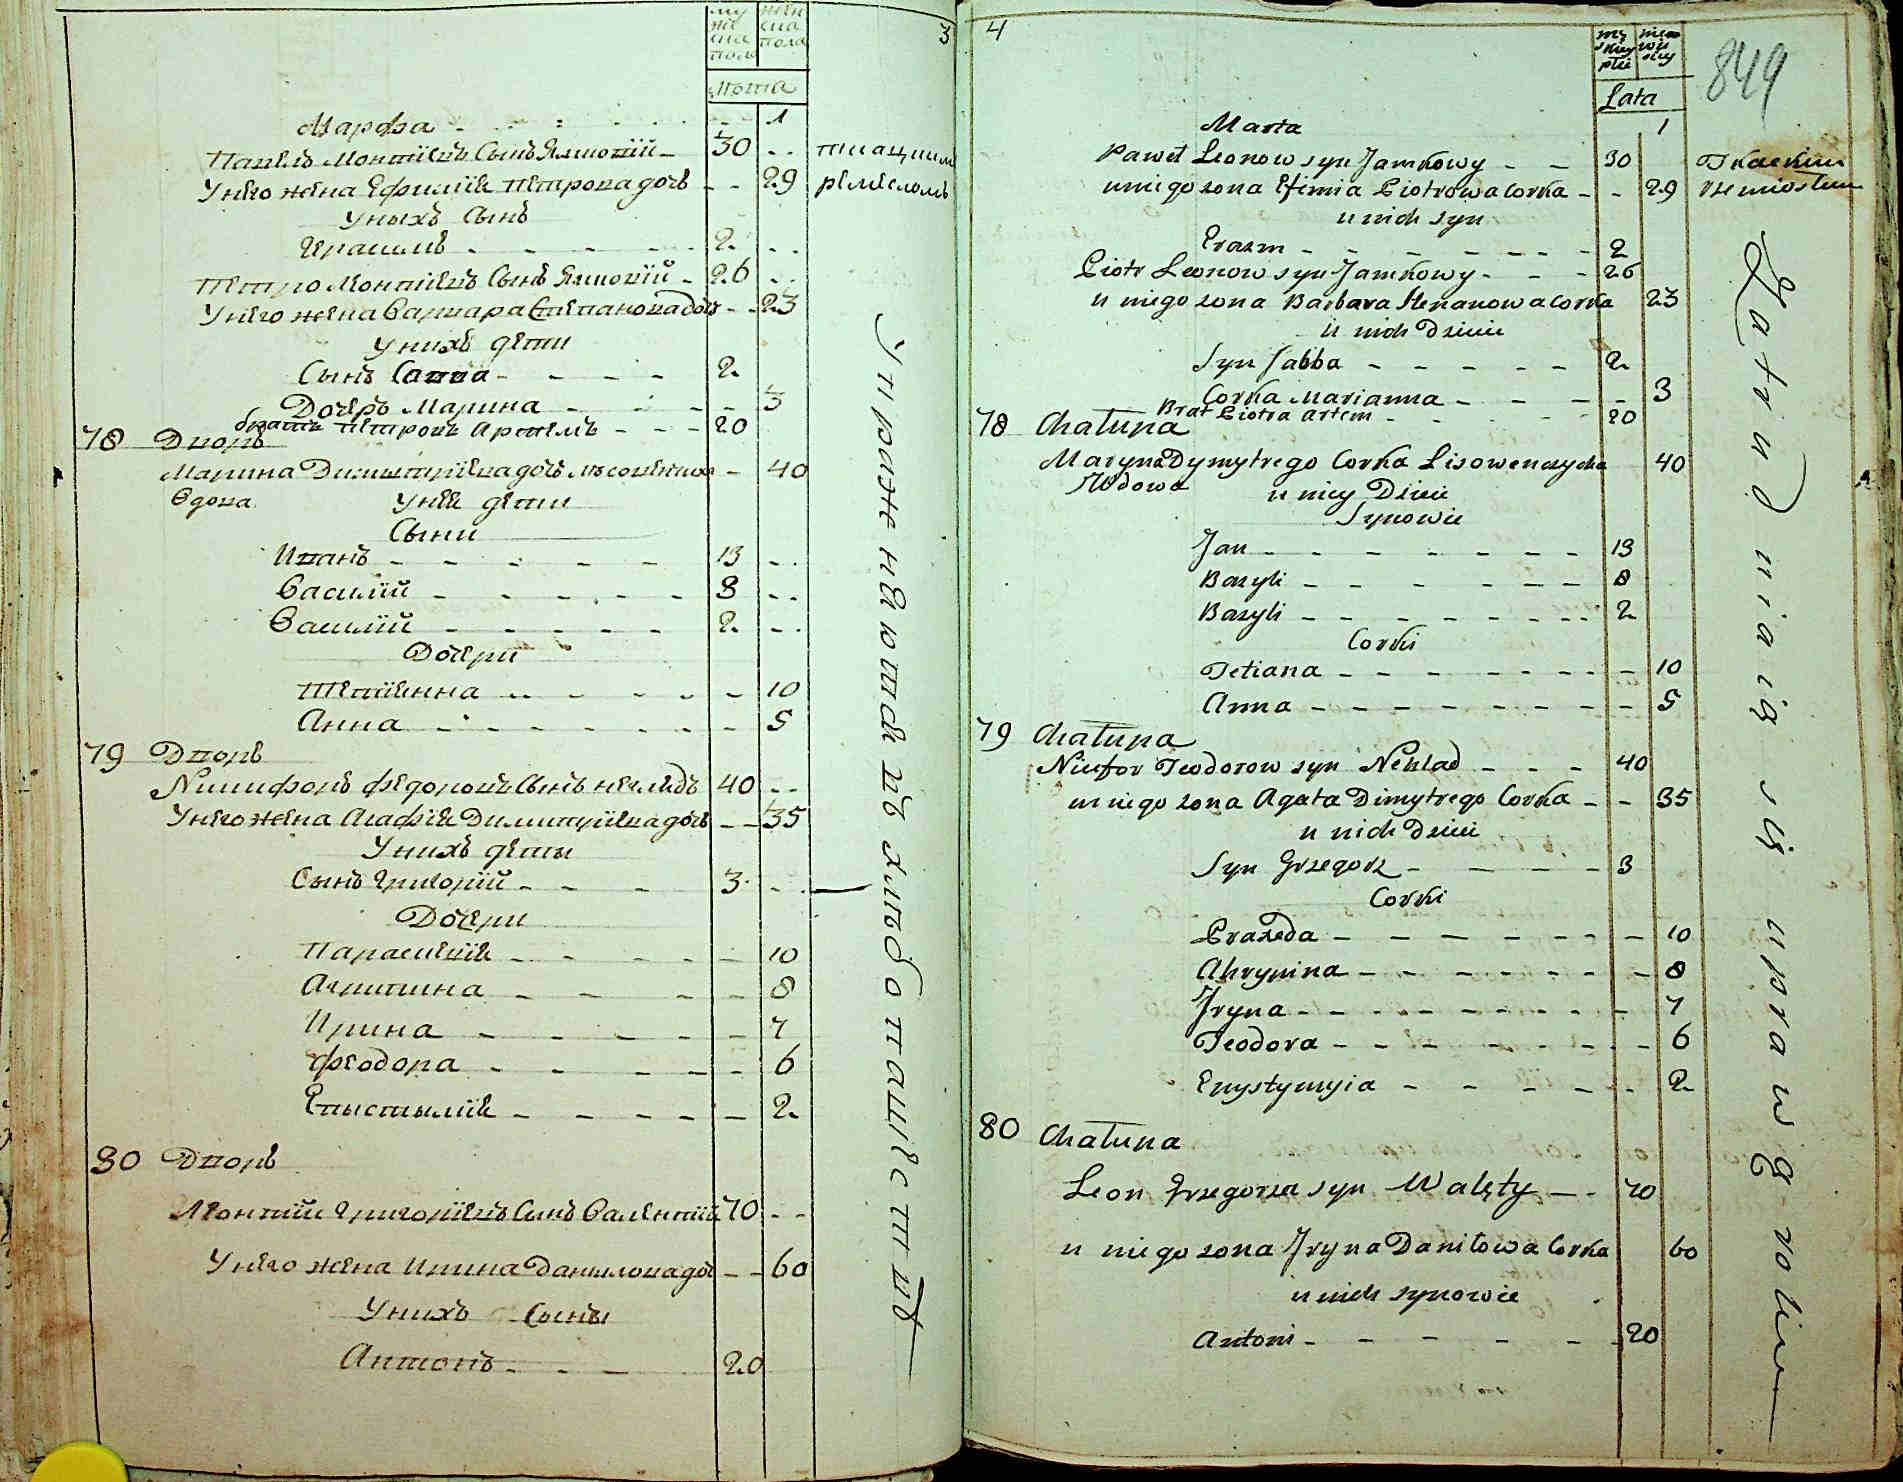 3
мужска пола
женска пола
Лѣта
Марфа - - - - - 1
Павелъ Леонтіевъ Сынъ Ямковій - 30 - - ткацкимъ
Унего жена Ефиміѧ Петрова дочь - - 29 ремесломъ
Унихъ Сынъ
Герасимъ - - - - - 2 - -
Петро Леонтіевъ Сынъ Ямковій - 26 - -
Унего жена Варвара Степанова дочь - - 23
Унихъ дети
Сынъ Савва - - - - 2
Дочерь Марина - - - - 3
братъ Петровъ Артемъ - - - 20
78 Дворъ
Марина Димитріева дочь - 40
Вдова Унея дети
Сыни
Иванъ - - - - - 13 - -
Василій - - - - - 8 - -
Василій - - - - - 2 - -
Дочери
Тетіянна - - - - - 10
Анна - - - - - - 5
79 Дворъ
Никифоръ Федоровъ Сынъ Нехледъ 40 - -
Унего жена Агафія Димитріева дочь - - 35
Унихъ деты
Сынъ Григорій - - - 3 - -
Дочери
Параскевія - - - - - 10
Агрипина - - - - 8
Ирина - - - - - 7
Феодора - - - - - 6
Евыстыміѧ - - - - - 2
80 Дворъ
Леонтій Григоріевъ Сынъ Валентій 70 - -
Унего жена Ирина Данилова доч - - 60
Унихъ Сыны
Антонъ - - - - 20
Упражняются въ хлѣбопашествѣ
4
męskiey płci
niewiesciey
849
Lata
Marta 1
Paweł Leonow syn Jamkowy - - 30 Tkackim
u niego zona Efimia Piotrowa Corka - - 29 rzemiosłem
u nich syn
Erazm - - - - - - 2
Piotr Leonow syn Jamkowy - - - 26
u niego zona Barbara Stepanowa Corka 23
u nich Dzieci
Syn Sabba - - - - - 2
Corka Marianna - - - - 3
Brat Piotra Artem - - - 20
78 Chałupa
Maryna Dymytrego Corka Lisowenczycha 40
Wdowa u niey Dzieci
Synowie
Jan - - - - - - - 13
Bazyli - - - - - - - 8
Bazyli - - - - - - - - 2
Corki
Tetiana - - - - - - - - 10
Anna - - - - - - - - - 5
79 Chałupa
Nicefor Teodorow syn Nehlad - - - 40
u niego zona Agata Dimytrego Corka - - 35
u nich Dzieci
Syn Grzegorz - - - - - 3
Corki
Praxeda - - - - - - - 10
Ahrypina - - - - - - - 8
Jryna - - - - - - - - - 7
Teodora - - - - - - - - 6
Ewystymyia - - - - - - 2
80 Chałupa
Leon Grzegorza syn Walęty - - 70
u niego zona Jryna Daniłowa Corka 60
u nich synowie
Antoni - - - - - - 20
Zatrudniaią się uprawą roli